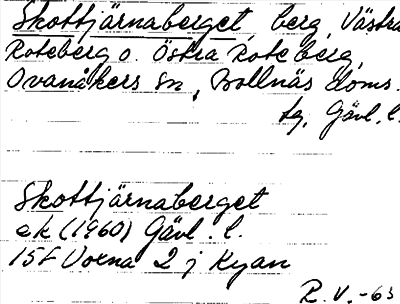 Skottjärnaberget, berg, Västra
Roteberg o. Östra Roteberg,
Ovanåkers sn, Bollnäs doms.
tg, Gävl. l.
Skottjärnaberget
ek (1960) Gävl. l.
15F Voxna 2 j Ryan
R.V.-63